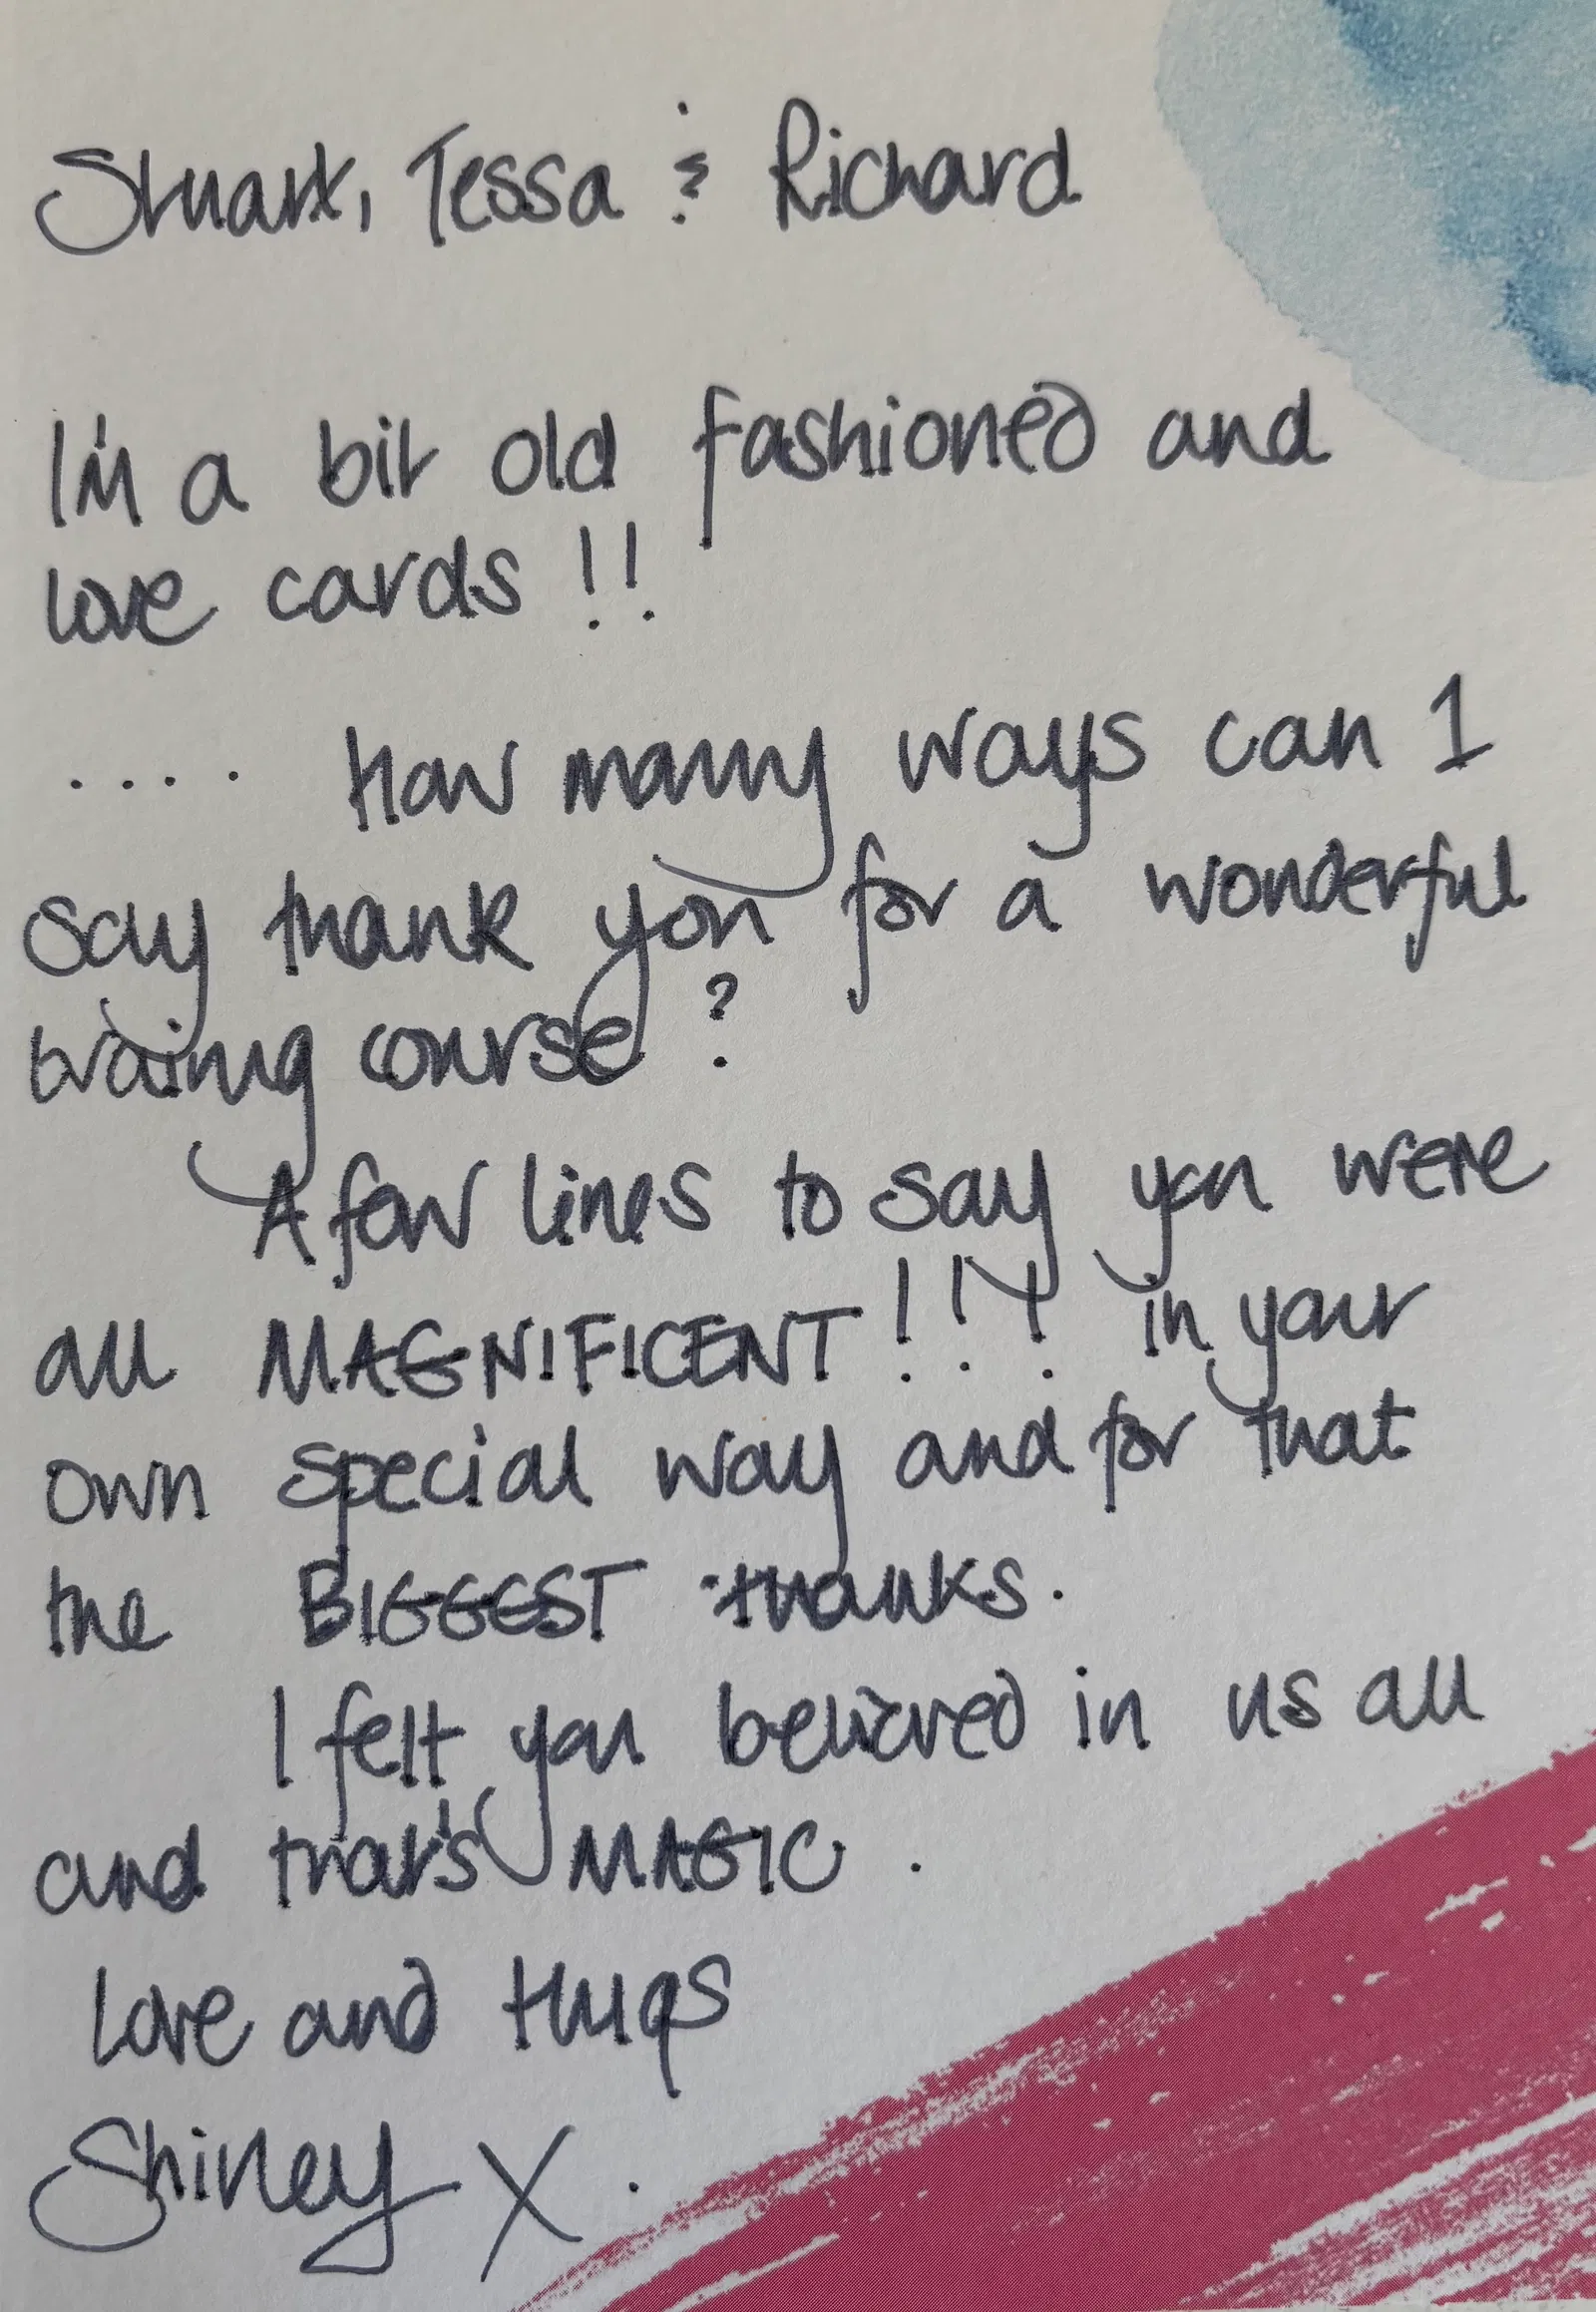 Stuart, Tessa & Richard
I'm a bit old fashioned and
love cards !!
.... How many ways can I
say thank you for a wonderful
traing course ?
A few lines to say you were
all MAGNIFICENT !!! in your
own special way and for that
the BIGGEST thanks.
I felt you believed in us all
and that's MAGIC .
Love and Hugs
Shirley X .